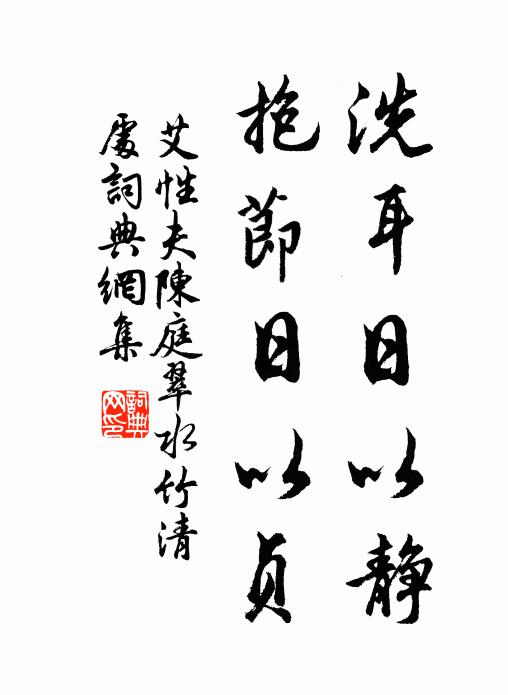 洗耳日以静
抱節日以貞
艾性夫陳庭翠水竹清
處詞典網集
詞典網印